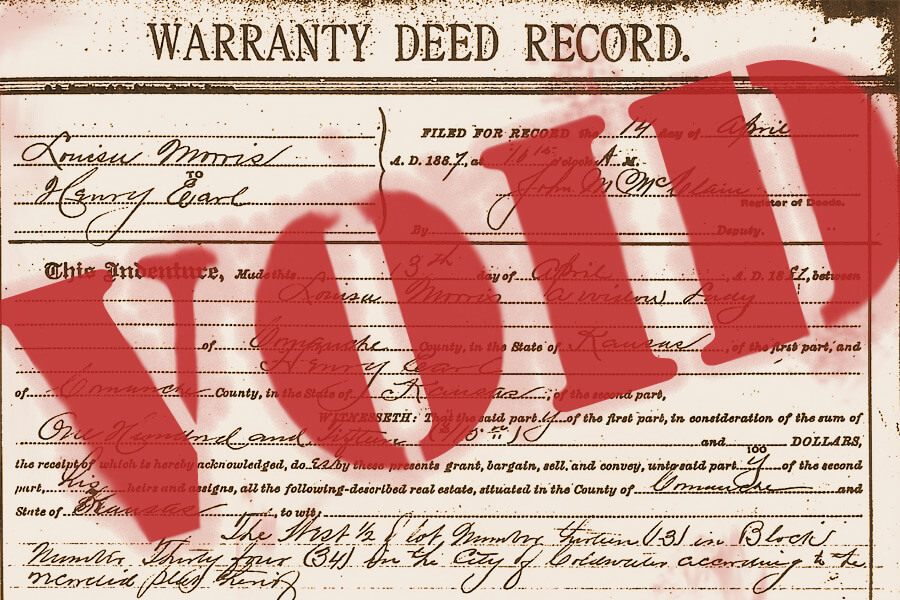 WARRANTY DEED RECORD.
FILED FOR RECORD the 14 day of April
Louisa Morris
A. D. 1887, at o'clock A. M.
TO
Henry Earl
John M McClain
Register of Deeds.
By Deputy.
This Indenture, Made this 13th day of April, A. D. 1887, between
Louisa Morris a widow Lady
of Comanche County, in the State of Kansas, of the first part, and
Henry Earl
of Comanche County, in the State of Kansas, of the second part,
WITNESSETH: That the said part y of the first part, in consideration of the sum of
One Hundred and and 100 DOLLARS,
the receipt of which is hereby acknowledged, do by these presents grant, bargain, sell, and convey, unto said part y of the second
part, his heirs and assigns, all the following-described real estate, situated in the County of Comanche and
State of Kansas, to wit:
The West ½ of lot Number thirteen (13) in Block
Number Thirty four (34) in the City of Coldwater according to the
recorded plat thereof
VOID